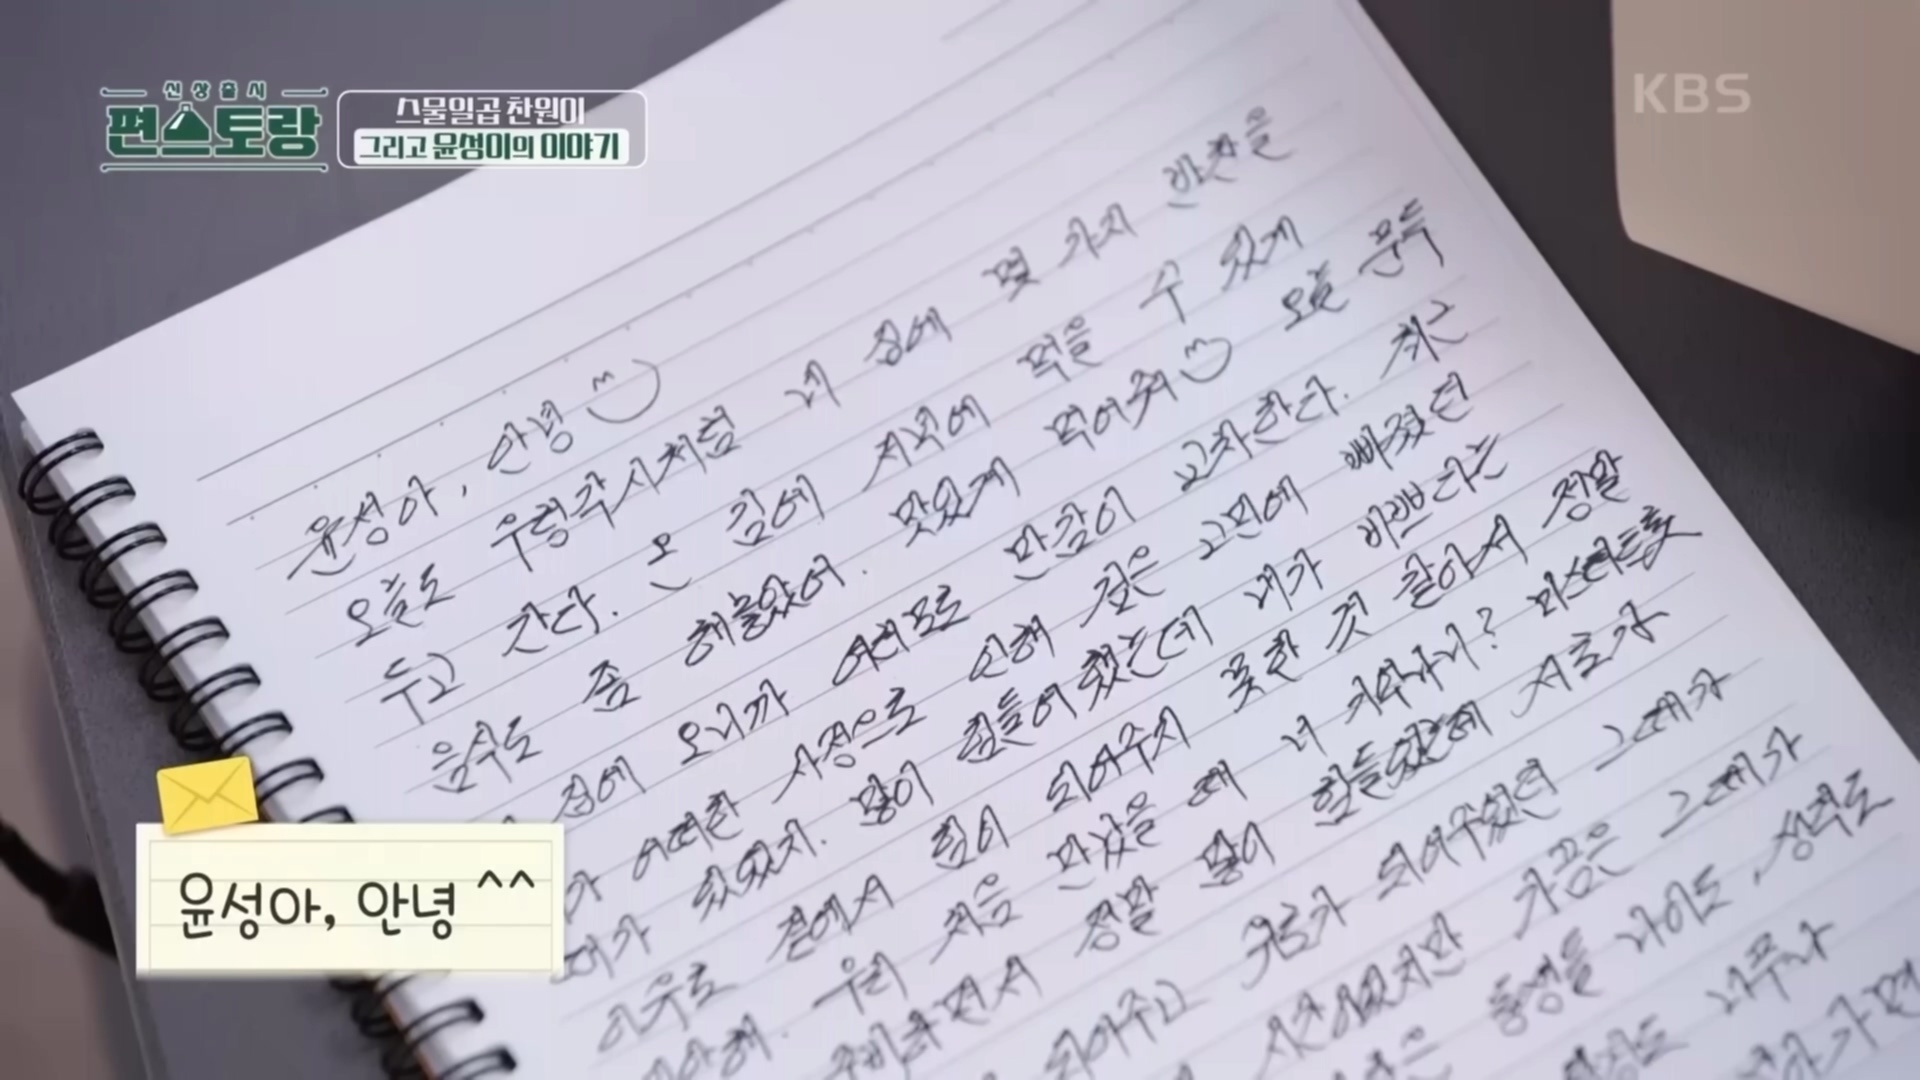 신상출시
편스토랑
스물일곱 찬원이
그리고 윤성이의 이야기
KBS
윤성아, 안녕
오늘도 우렁각시처럼 네 집에 몇 가지 반찬을
두고 간다. 온 김에 저녁에 먹을 수 있게
음식도 좀 해놓았어. 맛있게 먹어줘 오늘 문득
집에 오니까 여러모로 만감이 교차한다. 최근
어떠한 사정으로 인해 깊은 고민에 빠졌던
때가 있었지. 많이 힘들어했는데 내가 바쁘다는
이유로 곁에서 힘이 되어주지 못한 것 같아서 정말
미안해. 우리 처음 만났을 때 너 기억나니? 미스터트롯
준비하면서 정말 많이 힘들었는데 서로가
되어주고 위로가 되어주었던 그때가
가끔은 그때가
동생들 나이도, 성격도
너무나
윤성아, 안녕 ^^